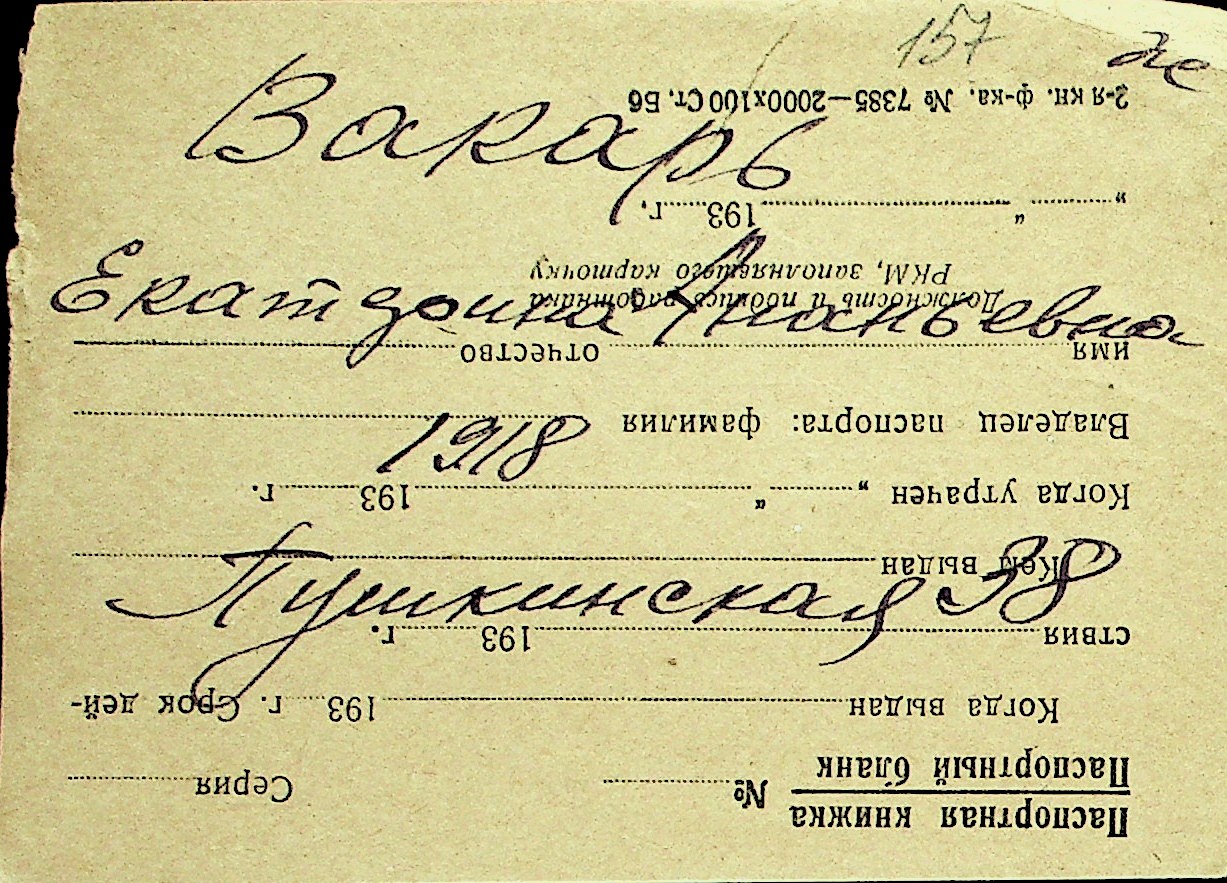 157
Вакарь
Екатерина Ананьевна
1918
Пушкинская 38
Паспортная книжка
Паспортный бланк
№ Серия
Когда выдан 193 г. Срок дей-
ствия 193 г.
Кем выдан
Когда утрачен „ “ 193 г.
Владелец паспорта: фамилия
имя отчество
Должность и подпись работника
РКМ, заполнявшего карточку
„ “ 193 г.
2-я кн. ф-ка. № 7385—2000х100 Ст. Бб